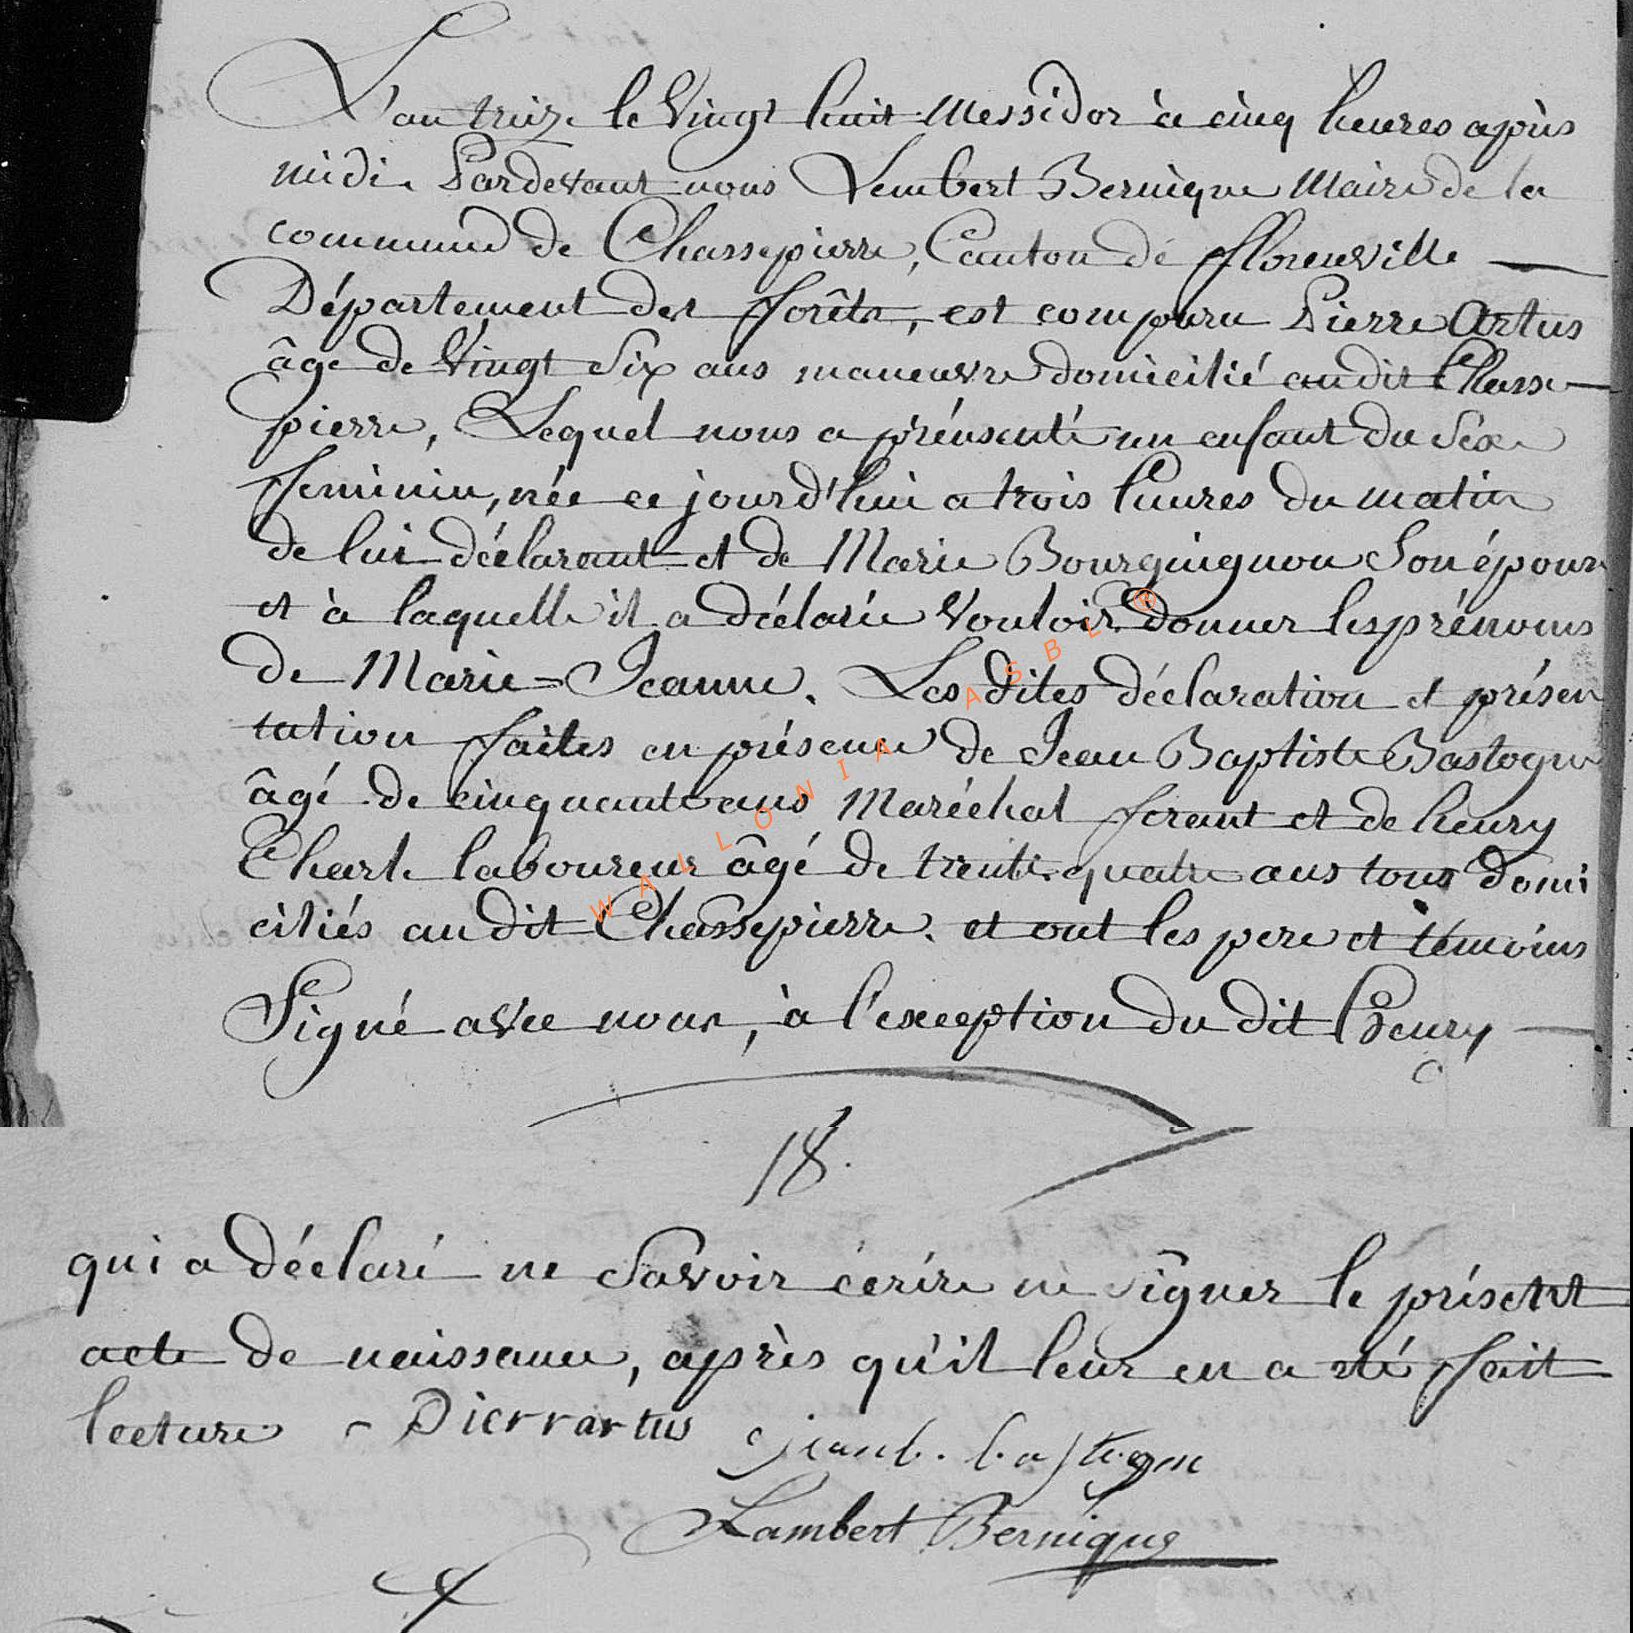 L'an treize le Vingt huit Messidor à cinq heures après
midi. Pardevant nous Lembert Bernique Maire de la
commune de Chassepierre, Canton de fflorenville
Département des forêts, est comparu Pierre Artus
âge de Vingt Six ans maneuvre domicilié au dit Chasse-
pierre, Lequel nous a présenté un enfant du Séxe
feminin, née ce jourd'hui a trois heures du matin
de lui déclarant et de Marie Bourguignon Son épouse
et à laquelle il a déclaré Vouloir donner les prénoms
de Marie=Jeanne. Les dites déclaration et présen
tation faites en présence de Jean Baptiste Bastogne
âgé de cinquante ans Maréchal ferant et de henry
Charle laboureur âgé de trente quatre ans tous domi
ciliés au dit Chassepierre. et ont les pere et témoins
Signé avec nous, à l'exception du dit henry
18.
qui a déclaré ne Savoir écrire ni signer le présent
acte de naissance, après qu'il leur en a été fait
lecture - Pierrartus jeanb. bastogne
Lambert Bernique
WALLONIA ASBL ®